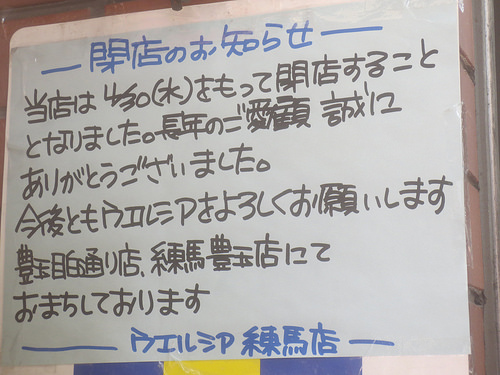 閉店のお知らせ
当店は 4/30(水)をもって閉店すること
となりました。長年のご愛顧 誠に
ありがとうございました。
今後ともウエルシアをよろしくお願いします
豊玉目白通り店、練馬豊玉店にて
おまちしております
ウエルシア 練馬店